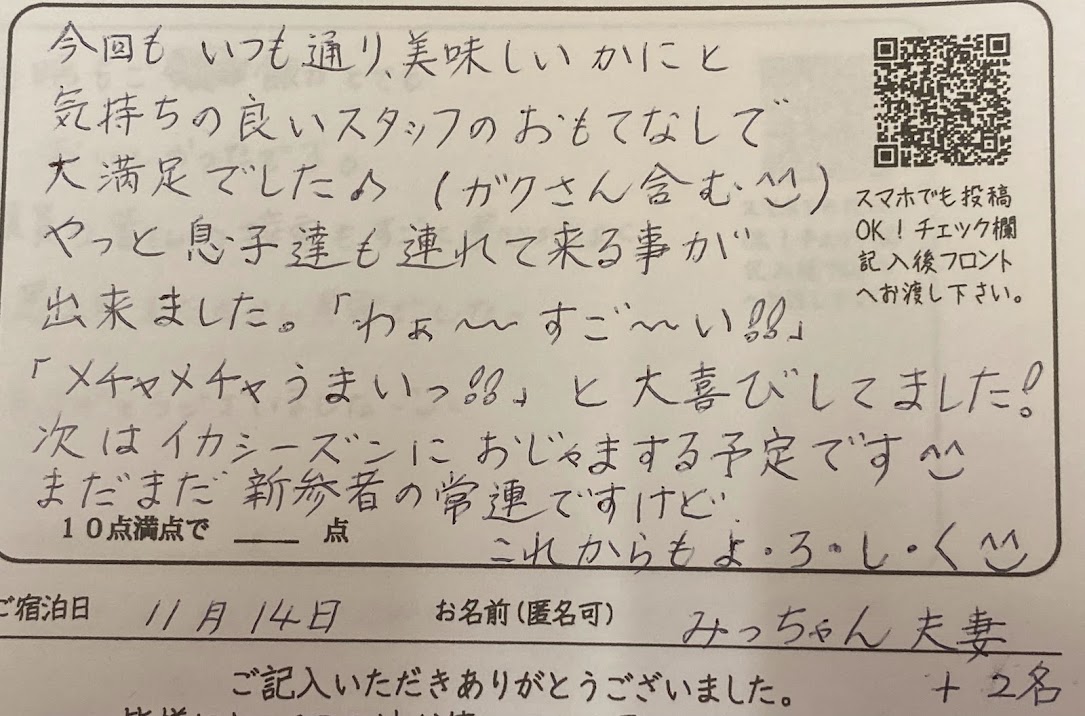 今回も いつも通り、美味しい かにと
気持ちの良いスタッフのおもてなしで
大満足でした♪ (ガクさん含む^^)
やっと 息子達も連れて来る事が
出来ました。「わぁ〜〜 すご〜〜い!!」
「メチャメチャうまいっ!!」と 大喜びしてました!
次はイカシーズンに おじゃまする予定です^^
まだまだ 新参者の常連ですけど
これからもよ・ろ・し・く^^
スマホでも投稿
OK！チェック欄
記入後フロント
へお渡し下さい。
10点満点で ____ 点
ご宿泊日 11月14日 お名前(匿名可) みっちゃん 夫妻
+ 2名
ご記入いただきありがとうございました。